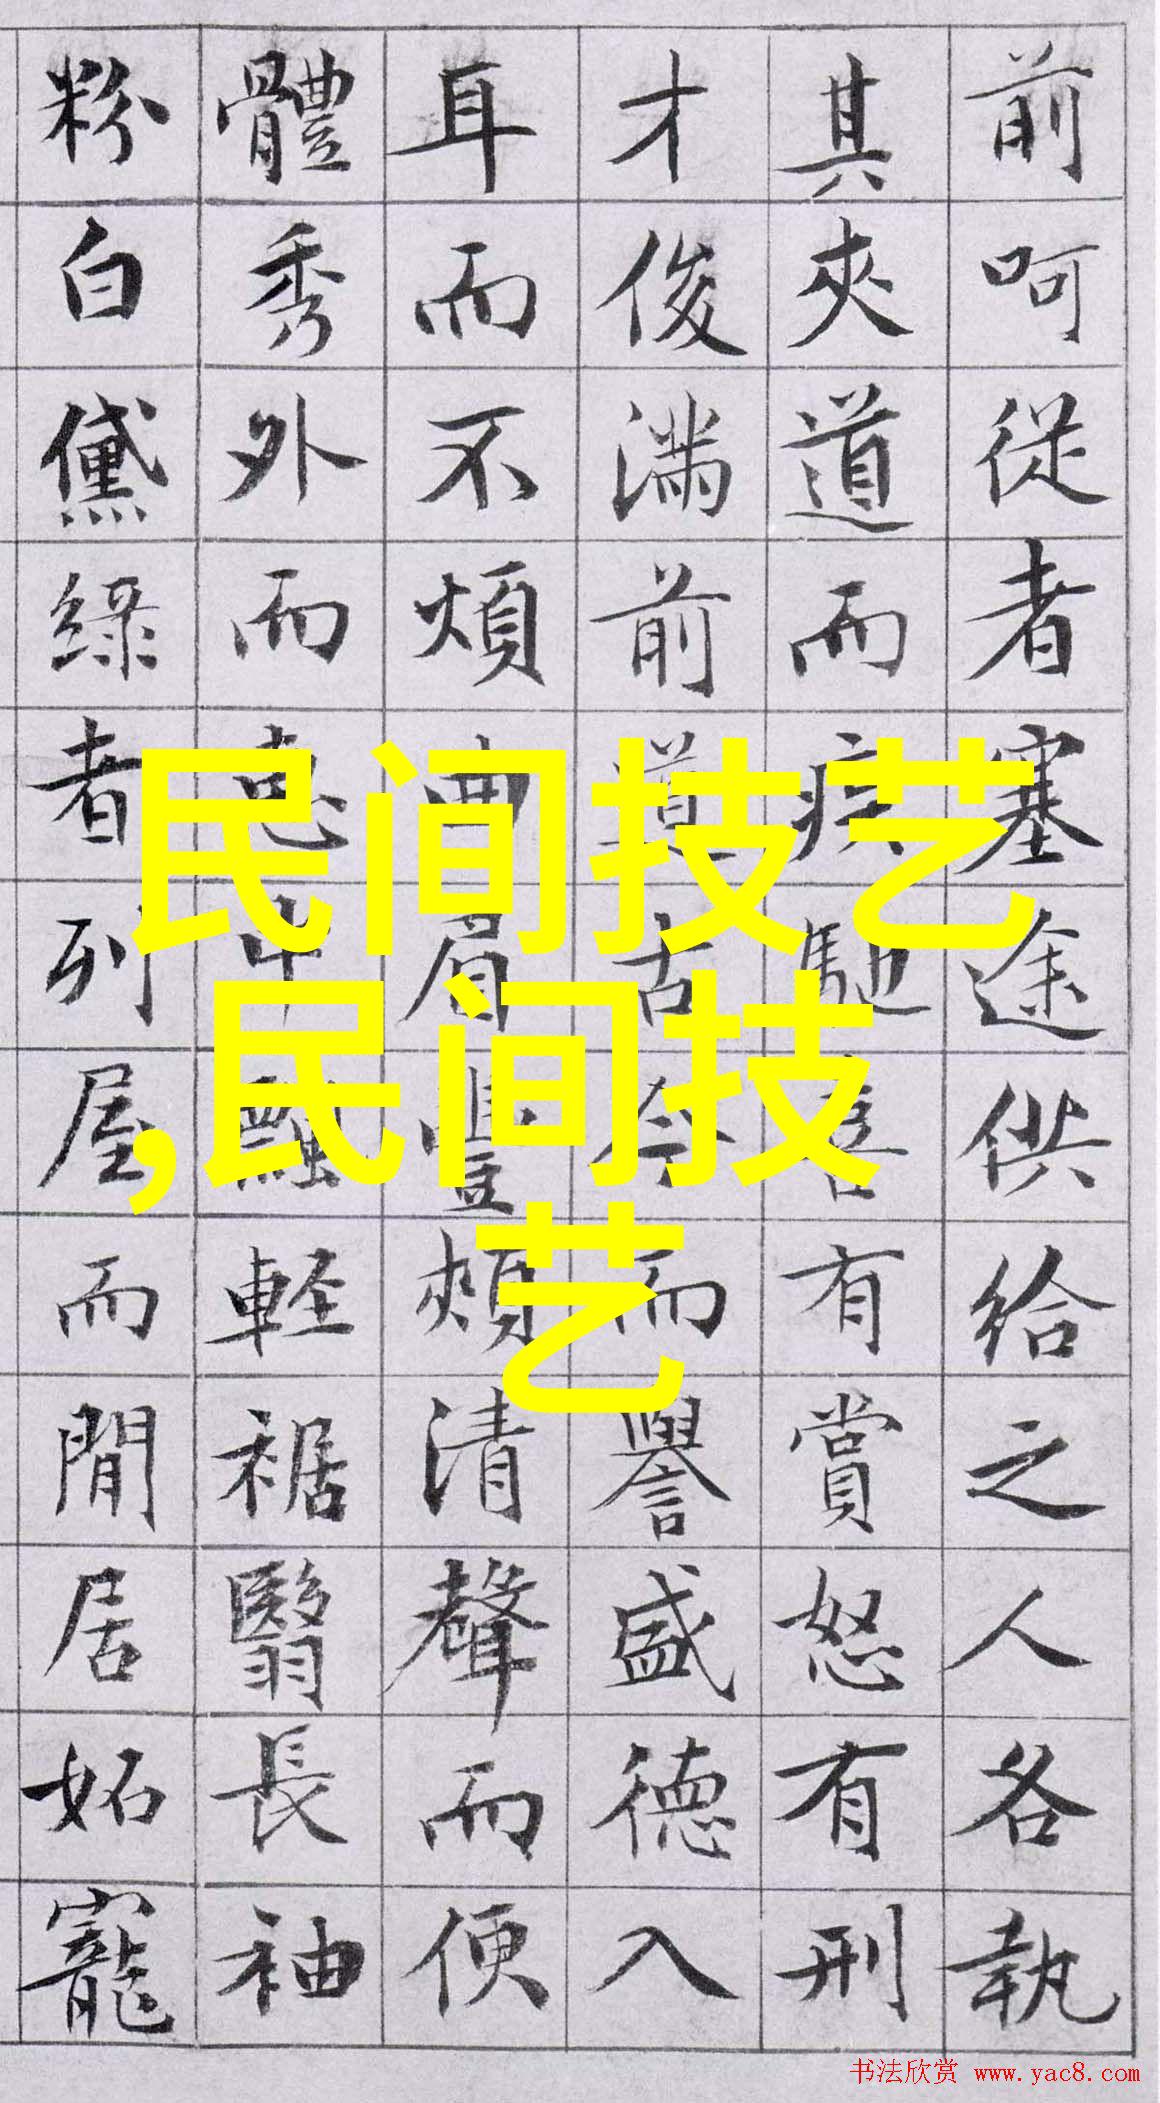 前呵從者塞途供給之人各執
其夾道而疾馳喜有賞怒有刑
才俊滿前道古今而譽盛德入
耳而不煩曲眉豐頰清聲而便
體秀外而惠中飄輕裾翳長袖
粉白黛綠者列屋而閒居妬寵
民间技艺
,民间技
艺
书法欣赏 www.yac8.com